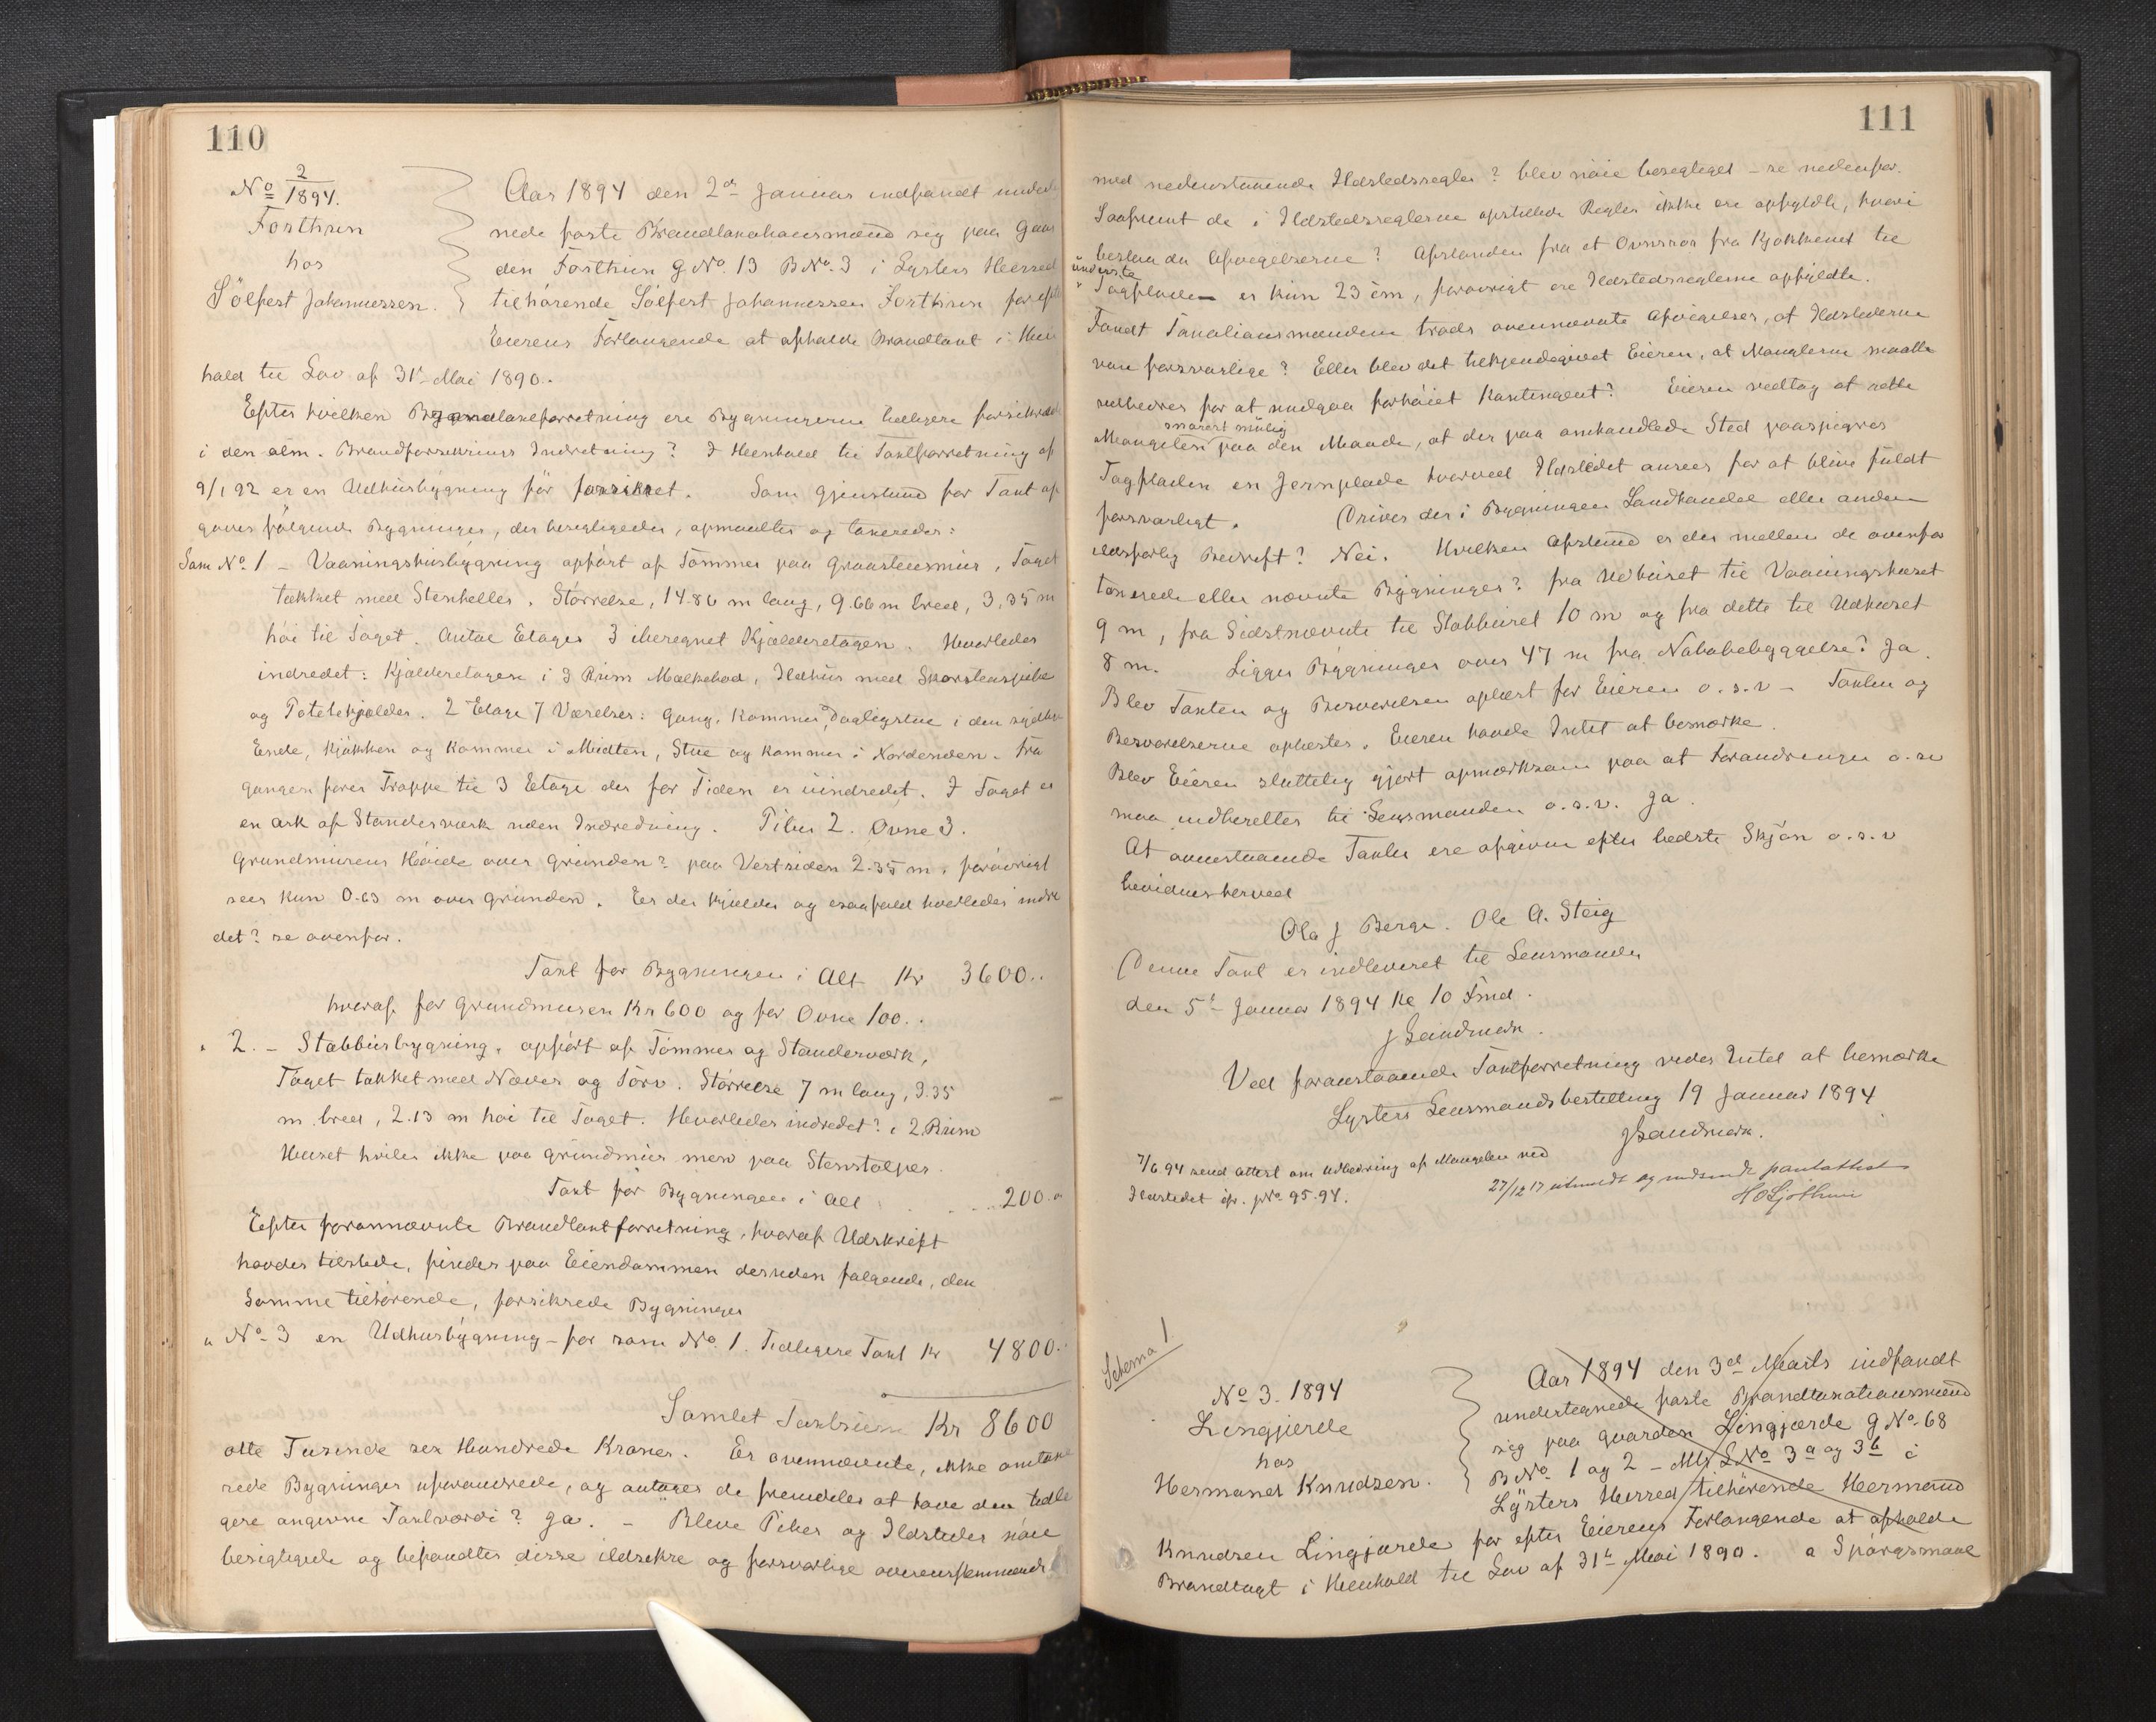 110
No 2/1894.
Forthun
hos
Sölfest Johannessen.
Aar 1894 den 2den Januar indfandt
nede faste Brandtaxationsmænd sig paa Gaar
den Forthun G.No. 13 B.No. 3 i Lysters Herred
tilhørende Sölfest Johannessen Forthun for efter
Eierens Forlangende at afholde Brandtaxt i Hen
hold til Lov af 31te Mai 1890.
Efter hvilken Brandtaxtforretning ere Bygningerne tidligere forsikrede
i den alm. Brandforsikrings Indretning? I Henhold til Taxtforretning af
9/1 92 er en Udhusbygning før forsikret. Som Gjenstand for Taxt op
gaves følgende Bygninger, der besigtigedes, opmaaltes og taxeredes:
Som No. 1 – Vaaningshusbygning opført af Tømmer paa Graastensmur, Taget
tækket med Stenheller. Størrelse, 14.86 m lang, 9.66 m bred, 3,35 m
høi til Taget. Antal Etager 3 iberegnet Kjælderetagen. Hvorledes
indredet: Kjælderetagen i 3 Rum Mælkebod, Ildhus med Skorstenspibe
og Potetekjælder. 2 Etage 7 Værelser: Gang, Kammer, Dagligstue i den sydlige
Ende, Kjøkken og Kammer i Midten, Stue og Kammer i Nordenden. Fra
gangen fører Trappe til 3 Etage der for Tiden er uindredet. I Taget er
en Ark af Standerværk uden Indredning. Piber 2. Ovne 3.
Grundmurens Høide over Grunden? paa Vestsiden 2.35 m, forøvrigt
sees kun 0.63 m over Grunden. Er der Kjelder og isaafald hvorledes indre
det? se ovenfor.
Taxt for Bygningen i Alt Kr 3600..
hvoraf for Grundmuren Kr 600 og for Ovne 100..
" 2. – Stabbursbygning, opført af Tømmer og Standerværk,
Taget tækket med Næver og Torv. Størrelse 7 m lang, 3.35
m. bred, 2.13 m høi til Taget. Hvorledes indredet? i 2 Rum
Huset hviler ikke paa Grundmur men paa Stenstolper.
Taxt for Bygningen i Alt . . . 200..
Efter forannævnte Brandtaxtforretning, hvoraf Udskrift
havdes tilstede, findes paa Eiendommen desuden følgende, den
samme tilhørende, forsikrede Bygninger
" No. 3 en Udhusbygning – før som No. 1. Tidligere Taxt Kr 4800..
Samlet Taxtsum Kr 8600
otte Tusinde sex Hundrede Kroner. Er ovennævnte, ikke omtaxe
rede Bygninger uforandrede, og antages de fremdeles at have den tidli
gere angivne Taxtværdi? Ja. – Bleve Piber og Ildsteder nøie
besigtigede og befandtes disse ildsikre og forsvarlige overensstemmende
111
med nedenstaaende Ildstedsregler? blev nøie besigtiget – se nedenfor.
Saafremt de i Ildstedsreglerne opstillede Regler ikke ere opfyldte, hvori
bestaa da Afvigelserne? Afstanden fra et Ovnsrør fra Kjøkkenet til
underste
Tagflade er kun 23 cm, forøvrigt ere Ildstedsreglerne opfyldte.
Fandt Taxationsmændene trods ovennævnte Afvigelser, at Ildstederne
vare forsvarlige? Eller blev det tilkjendegivet Eieren, at Manglerne maatte
udbedres for at undgaa forhøiet Kontingent? Eieren vedtog at rette
snarest mulig
Mangelen paa den Maade, at der paa omhandlede Sted paaspigres
Tagfladen en Jernplade hvorved Ildstedet ansees for at blive fuldt
forsvarligt. Drives der i Bygningen Landhandel eller anden
ildsfarlig Bedrift? Nei. Hvilken Afstand er der mellem de ovenfor
taxerede eller nævnte Bygninger? fra Ildhuset til Vaaningshuset
9 m, fra Sidstnævnte til Stabburet 10 m og fra dette til Udhuset
8 m. Ligger Bygninger over 47 m fra Nabobebyggelse? Ja.
Blev Taxten og Besvarelsen oplæst for Eieren o.s.v – Taxten og
Besvarelserne oplæstes. Eieren havde Intet at bemærke.
Blev Eieren sluttelig gjort opmærksom paa at Forandringer o.s.v
maa indberettes til Lensmanden o.s.v. Ja.
At ovenstaaende Taxter ere afgivne efter bedste Skjøn o.s.v
bevidnes herved
Ola J Berge. Ole A. Steig
Denne Taxt er indleveret til Lensmanden
den 5te Januar 1894 Kl 10 Fmd.
J Sandmark.
Ved foranstaaende Taxtforretning vides Intet at bemærke
Lysters Lensmandsbestilling 19 Januar 1894
J Sandmark.
7/6 94 send Attest om Udbedring af Mangelen ved
Ildstedet cfr. No. 95.94.
27/12 17 utmeldt og indsendt pantattest
Schema 1
No 3. 1894
Lingjærde
hos
Hermund Knudsen.
Aar 1894 den 3die Marts indfandt
undertegnede faste Brandtaxationsmænd
sig paa gaarden Lingjærde G No. 68
B No. 1 og 2 – L No 3a og 3b i
Lysters Herred tilhørende Hermund
Knudsen Lingjærde for efter Eierens Forlangende at afholde
Brandtagt i Henhold til Lov af 31te Mai 1890. a Spørgsmaal